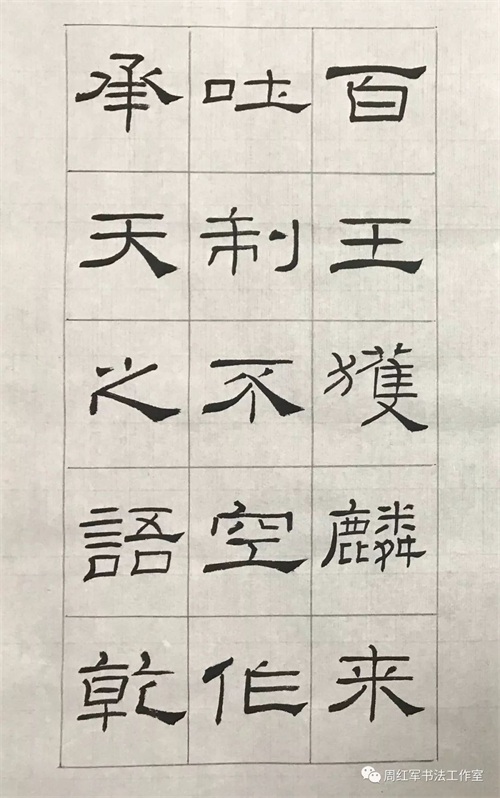 百王獲麟来
吐制不空作
承天之語乾
周红军书法工作室